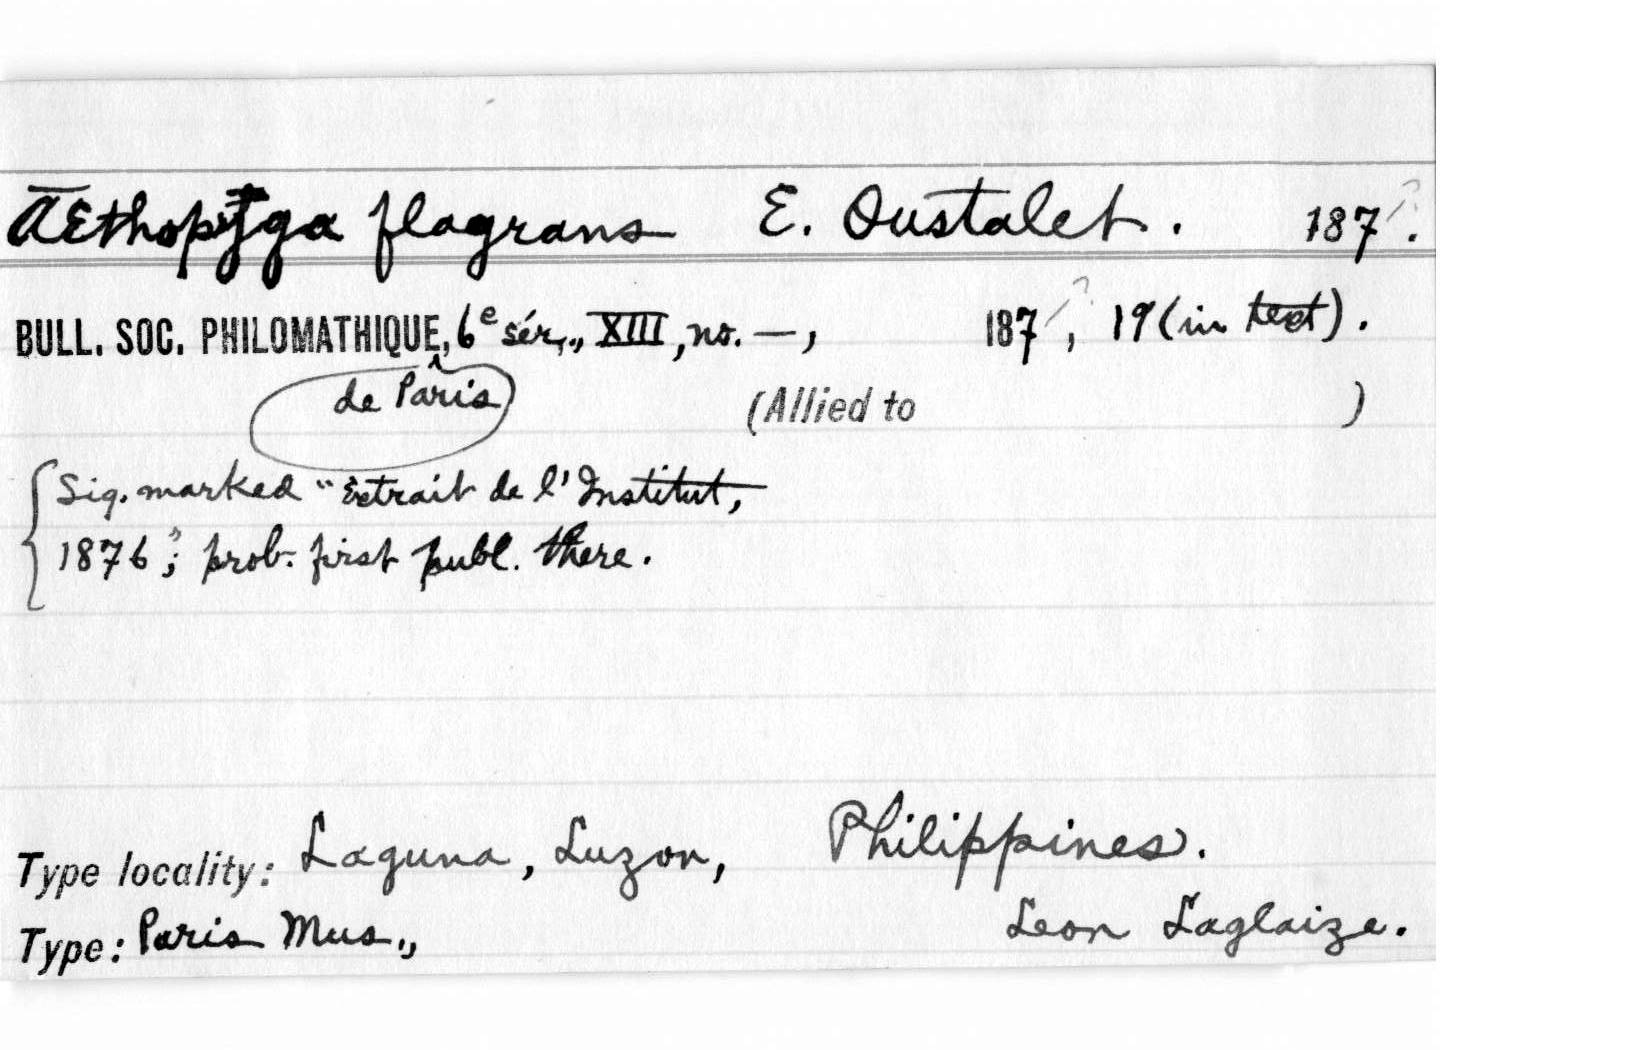 Aethopyga flagrans E. Oustalet. 187?.
BULL. SOC. PHILOMATHIQUE, 6e sér., XIII, no. —, 187?, 19 (in text).
de Paris
(Allied to )
{Sig. marked "Extrait de l'Institut,
1876"; prob. first publ. there.
Type locality: Laguna, Luzon, Philippines.
Type: Paris Mus., Leon Laglaize.